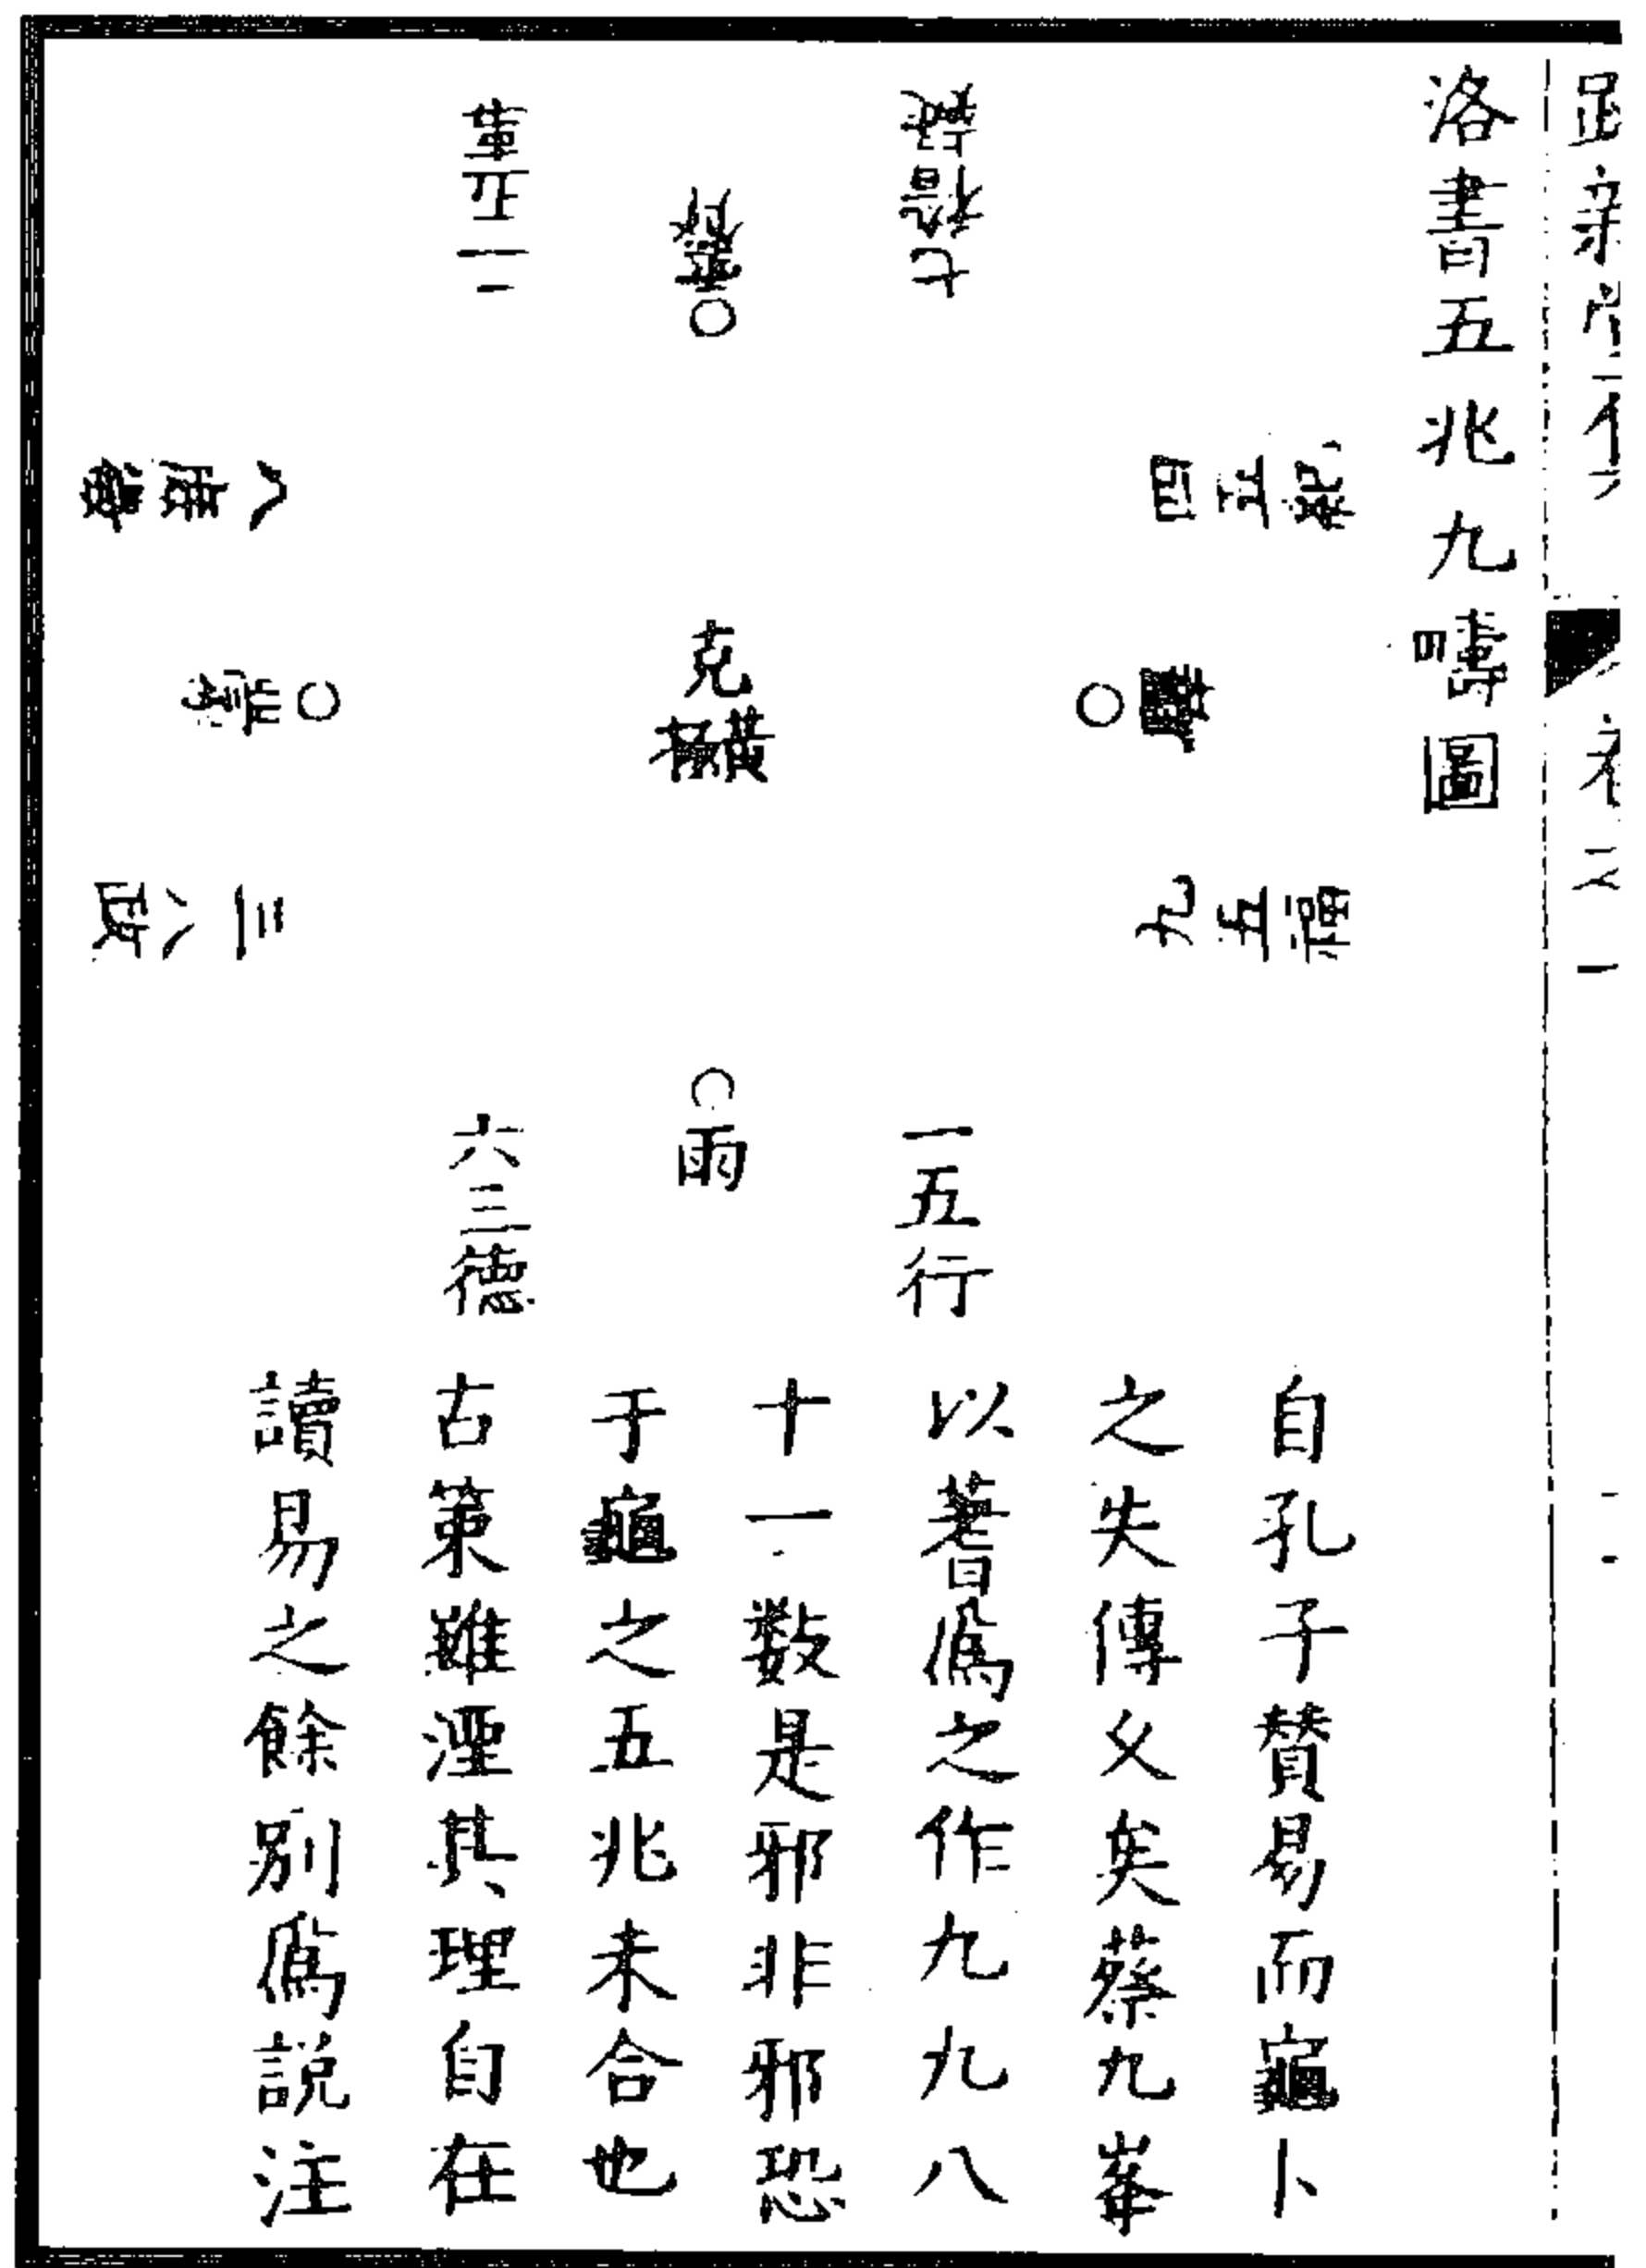 洛書五兆九疇圖
七稽疑
二五事
四五紀
八庶徵
克
九五福
三八政
雨
一五行
六三德
自孔子賛易而龜卜
之失傳久矣蔡九峯
以蓍爲之作九九八
十一数是邪非邪恐
于龜之五兆未合也
古策雖湮其理自在
讀易之餘別爲説注